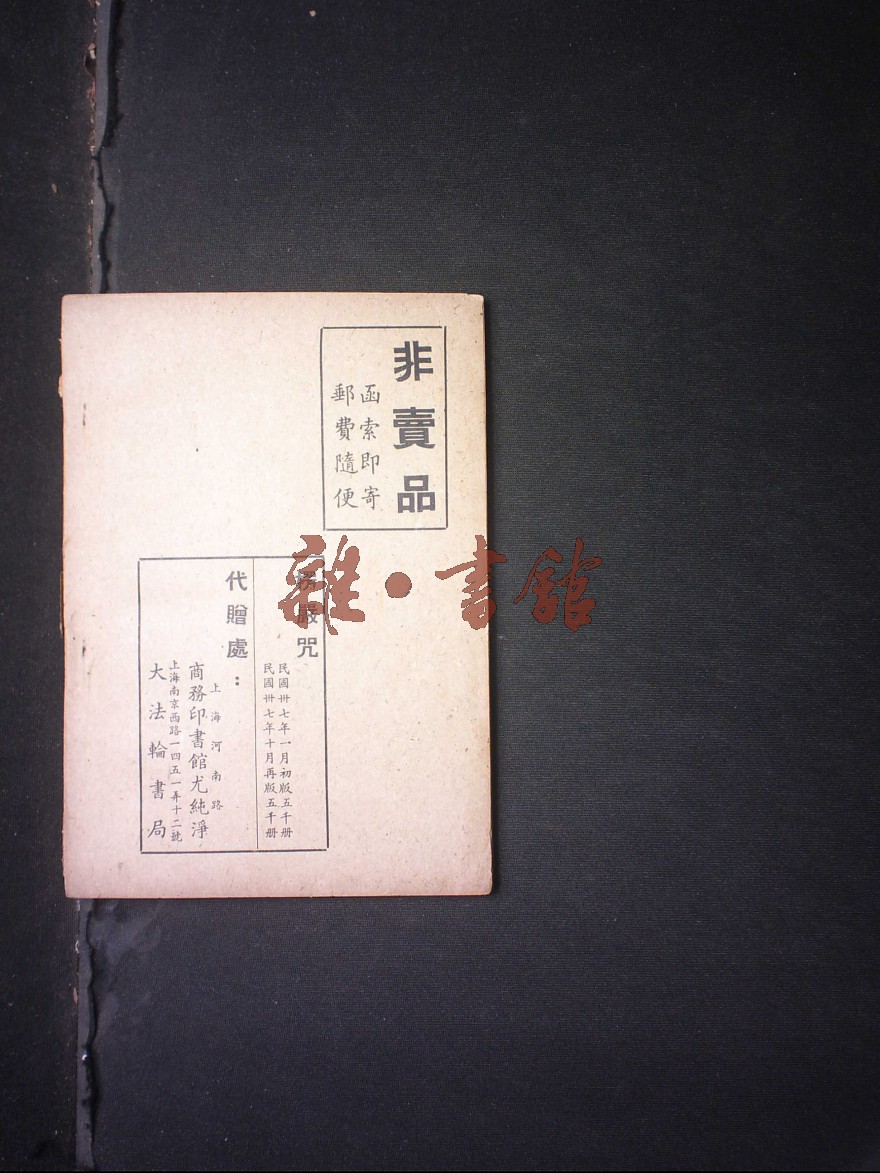 非賣品
函索即寄
郵費隨便
楞嚴咒
民國卅七年一月初版五千册
民國卅七年十月再版五千册
代贈處：
上海河南路
商務印書館尤純淨
上海南京西路一四五一弄十二號
大法輪書局
雜·書館